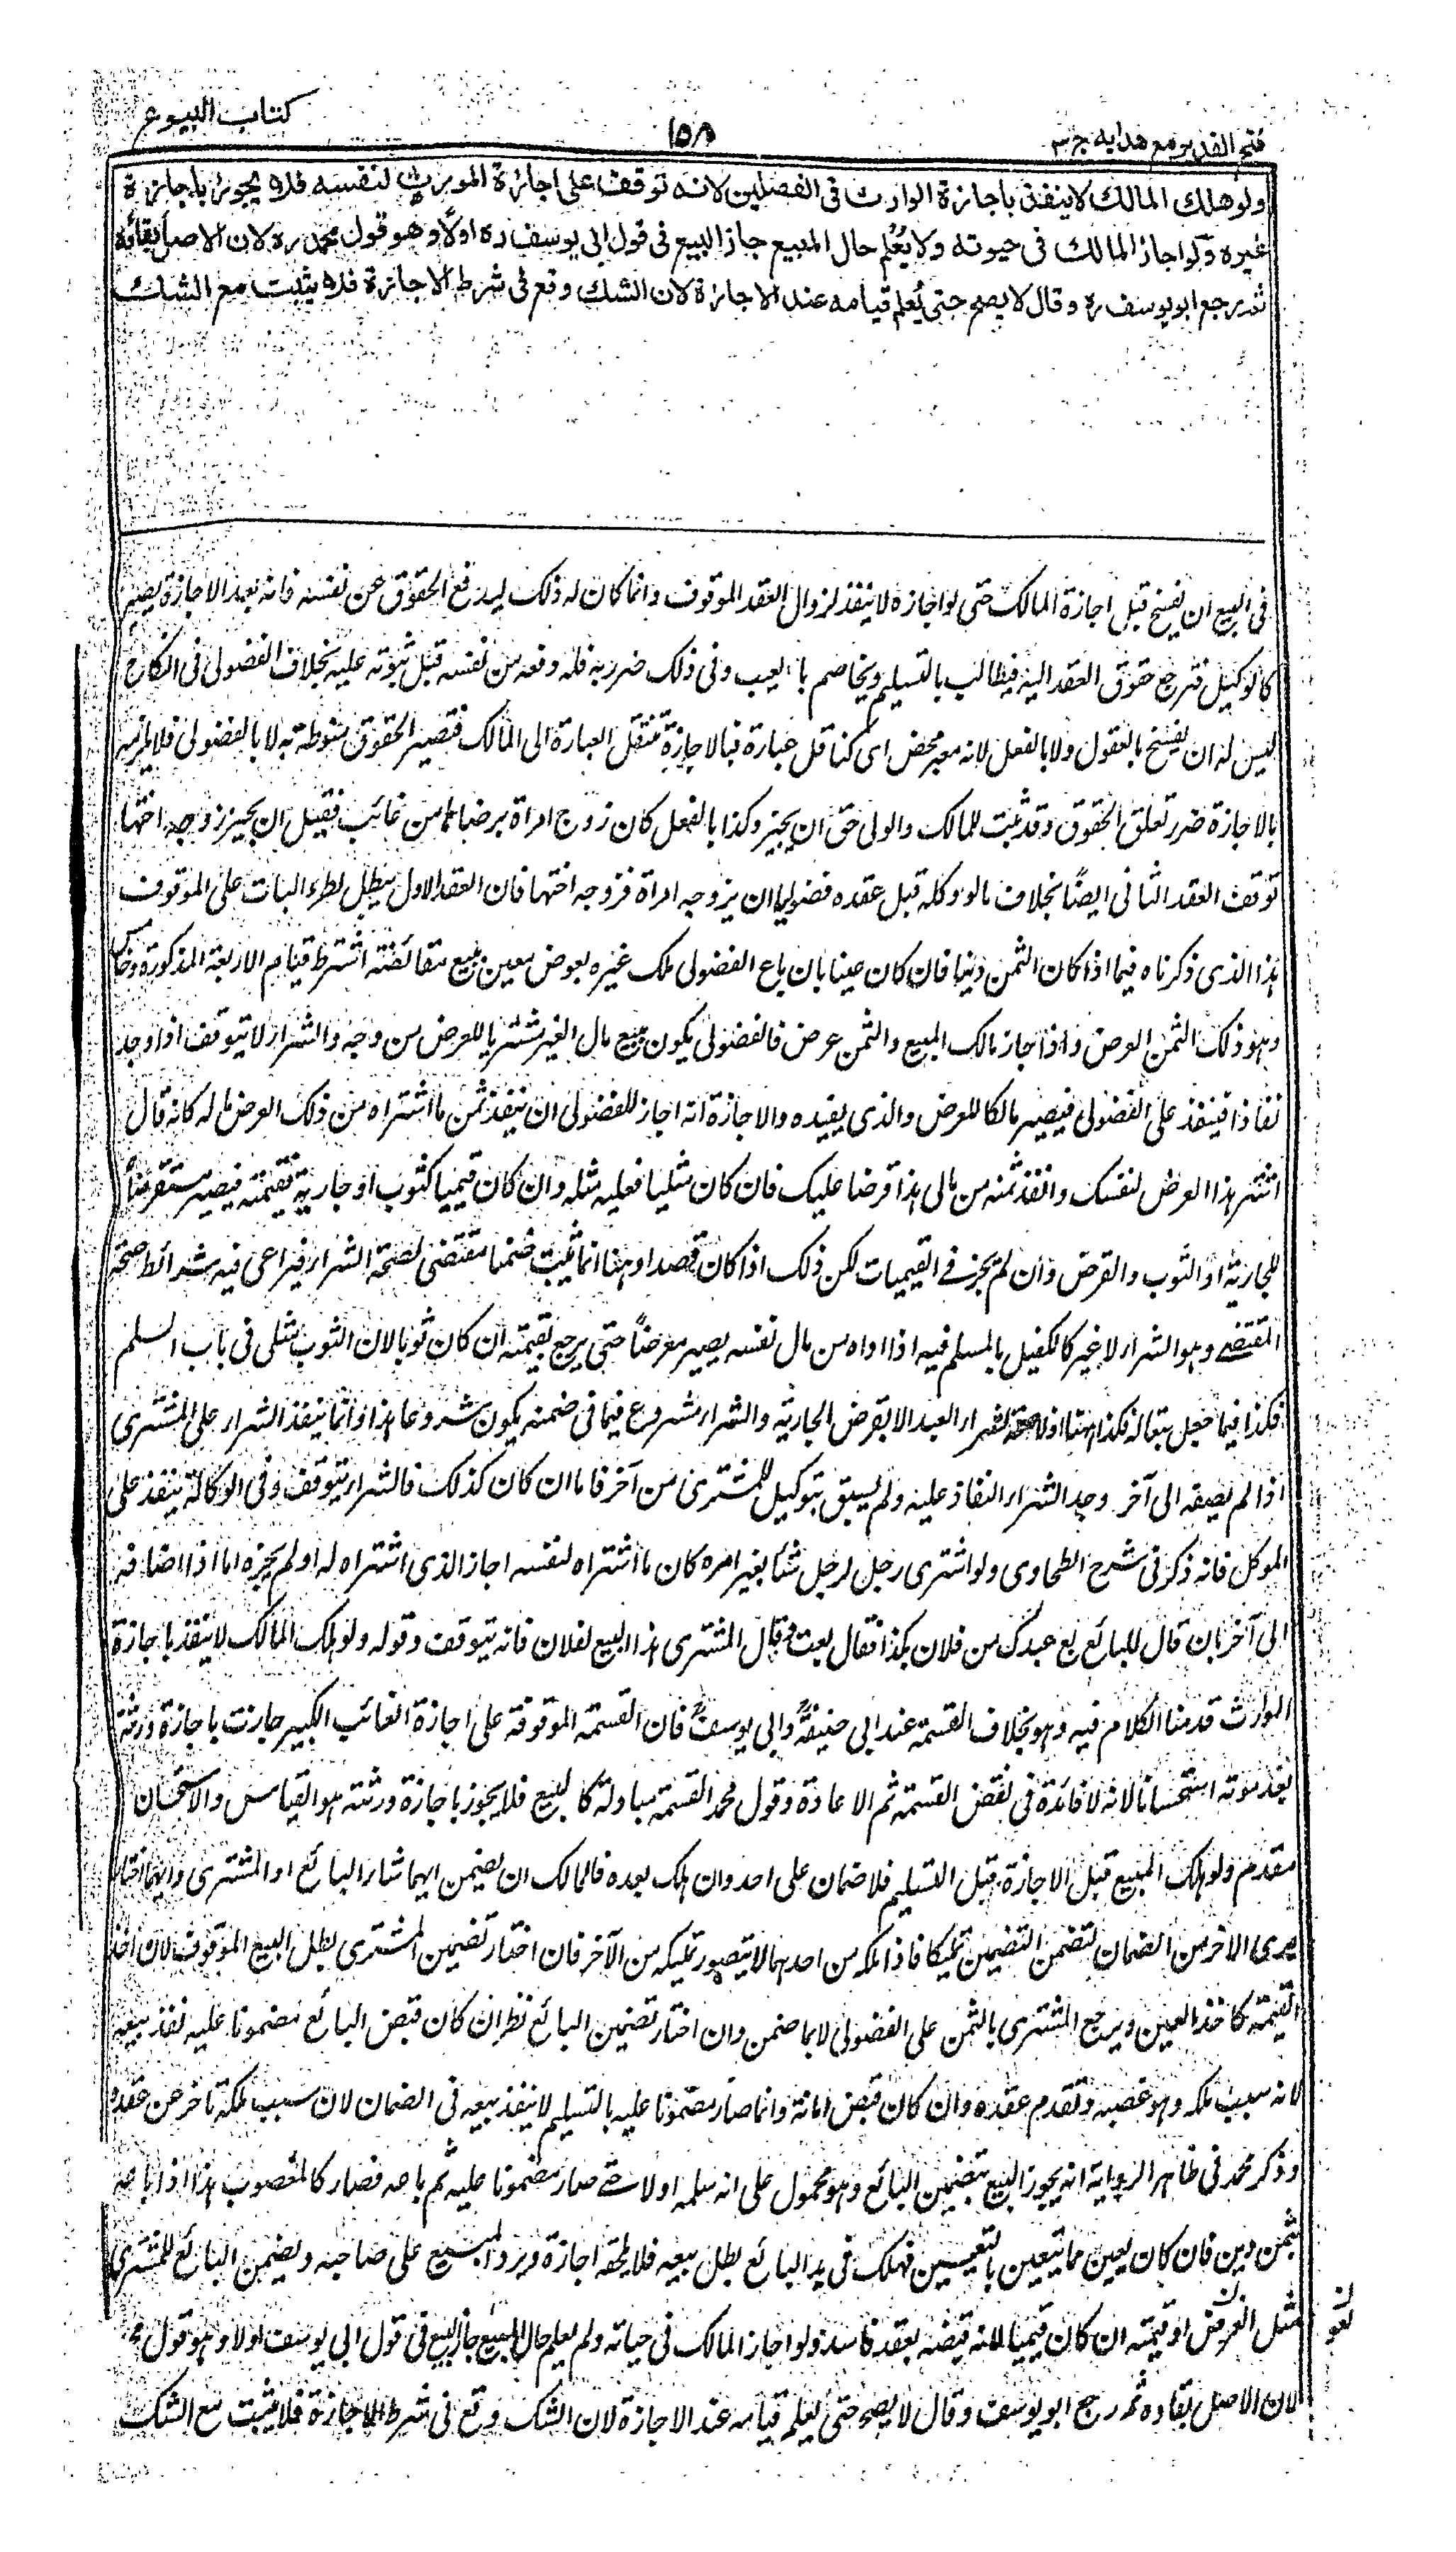 فتح القدير مع هدايه ج ٣
١٥٨
كتاب البيوع
ولو هلك المالك لا ينفذ باجازة الوارث فى الفصلين لانه توقف على اجازة المورث لنفسه فلا يجوز باجازة
غيره ولو اجاز المالك فى حيوته ولا يُعلم حال المبيع جاز البيع فى قول ابى يوسف ره اولًا وهو قول محمد ره لان الاصل بقاؤه
ثم رجع ابو يوسف ره وقال لا يصح حتى يُعلم قيامه عند الاجازة لان الشك وقع فى شرط الاجازة فلا يثبت مع الشك
فى البيع ان يفسخ قبل اجازة المالك حتى لو اجازه لا ينفذ لزوال العقد الموقوف وانما كان له ذلك ليدفع الحقوق عن نفسه فانه بعد الاجازة يصير
كالوكيل فترجع حقوق العقد اليه فيطالب بالتسليم ويخاصم بالعيب وفى ذلك ضرر به فله دفعه من نفسه قبل ثبوته عليه بخلاف الفضولى فى النكاح
ليس له ان يفسخ بالقول ولا بالفعل لانه معبر محض اى كناقل عبارة فبالاجازة تنتقل العبارة الى المالك فتصير الحقوق منوطة به لا بالفضولى فلا يلزمه
بالاجازة ضرر تعلق الحقوق وقد ثبت للمالك والولى حق ان يجيز وكذا بالفعل كان زوج امرأة برضاها من غائب فقبل ان يجيز زوجه اختها
توقف العقد الثانى ايضًا بخلاف ما لو وكله قبل عقده فضوليا ان يزوجه امرأة فزوجه اختها فان العقد الاول يبطل لطرء البات على الموقوف
هذا الذى ذكرناه فيما اذا كان الثمن دينا فان كان عينا بان باع الفضولى ملك غيره بعوض معين بيع مقائضة اشترط قيام الاربعة المذكورة وخامس
وهو ذلك الثمن العرض واذا اجاز مالك المبيع والثمن عرض فالفضولى يكون ببيع مال الغير مشتريا للعرض من وجه والشراء لا يتوقف اذا وجد
نفاذا فينفذ على الفضولى فيصير مالكا للعرض والذى يفيده والاجازة انه اجاز للفضولى ان ينفذ ثمن ما اشتراه من ذلك العرض ماله كانه قال
اشتر هذا العرض لنفسك وانقد ثمنه من مالى هذا قرضا عليك فان كان مثليا فعليه مثله وان كان قيميا كثوب او جارية فقيمته فيصير مستقرضًا
للجارية او الثوب والقرض وان لم يجز فى القيميات لكن ذلك اذا كان قصدا وههنا انما ثبت ضمنا مقتضى لصحة الشراء فيراعى فيه شرائط صحة
المقتضى وهو الشراء لا غير كالكفيل بالمسلم فيه اذا اداه من مال نفسه يصير مقرضًا حتى يرجع بقيمته ان كان ثوبا لان الثوب مثلى فى باب السلم
فكذا فيما جعل تبعا له فكذا ههنا اذ لا صحة لشراء العبد الا بقرض الجارية والشراء مشروع فيما فى ضمنه يكون مشروعا هذا وانما ينفذ الشراء على المشترى
اذا لم يضفه الى آخر وجد الشراء النفاذ عليه ولم يسبق بتوكيل للمشترى من آخر فاما ان كان كذلك فالشراء يتوقف وفى الوكالة ينفذ على
الموكل فانه ذكر فى شرح الطحاوى ولو اشترى رجل لرجل شيئا بغير امره كان ما اشتراه لنفسه اجاز الذى اشتراه له او لم يجزه اما اذا اضافه
الى آخر بان قال للبائع بع عبدك من فلان بكذا فقال بعت وقال المشترى هذا البيع لفلان فانه يتوقف وقوله ولو هلك المالك لا ينفذ باجازة
الوارث قدمنا الكلام فيه وهو بخلاف القسمة عند ابى حنيفةؒ وابى يوسفؒ فان القسمة الموقوفة على اجازة الغائب الكبير جازت باجازة ورثته
بعد موته استحسانا لانه لا فائدة فى نقض القسمة ثم الاعادة وقول محمد القسمة مبادلة كالبيع فلا يجوز باجازة ورثته هو القياس والاستحسان
مقدم ولو هلك المبيع قبل الاجازة قبل التسليم فلا ضمان على احد وان هلك بعده فالمالك ان يضمن ايهما شاء البائع او المشترى وايهما اختار
يبرى الاخر من الضمان لتضمن التضمين تمليكا فاذا ملكه من احدهما لا يتصور تمليكه من الآخر فان اختار تضمين المشترى بطل البيع الموقوف لان اخذ
القيمة كاخذ العين ويرجع المشترى بالثمن على الفضولى لا بما ضمن وان اختار تضمين البائع نظر ان كان قبض البائع مضمونا عليه نفذ بيعه
لانه سبب ملكه وهو غصبه وتقدم عقده وان كان قبض امانة وانما صار مضمونا عليه بالتسليم لا ينفذ بيعه فى الضمان لان سبب ملكه تاخر عن عقده
وذكر محمد فى ظاهر الرواية انه يجوز البيع بتضمين البائع وهو محمول على انه سلمه اولا حتى صار مضمونا عليه ثم باعه فصار كالمغصوب هذا اذا باعه
بثمن دين فان كان بعين مما يتعين بالتعيين فهلك فى يد البائع بطل بيعه فلا يلحقه اجازة ويرد المبيع على صاحبه ويضمن البائع للمشترى
مثل العرض او قيمته ان كان قيميا لانه قبضه بعقد فاسد ولو اجاز المالك فى حياته ولم يعلم حال المبيع جاز البيع فى قول ابى يوسف اولا وهو قول محمد
لان الاصل بقاؤه ثم رجع ابو يوسف وقال لا يصح حتى يعلم قيامه عند الاجازة لان الشك وقع فى شرط الاجازة فلا يثبت مع الشك